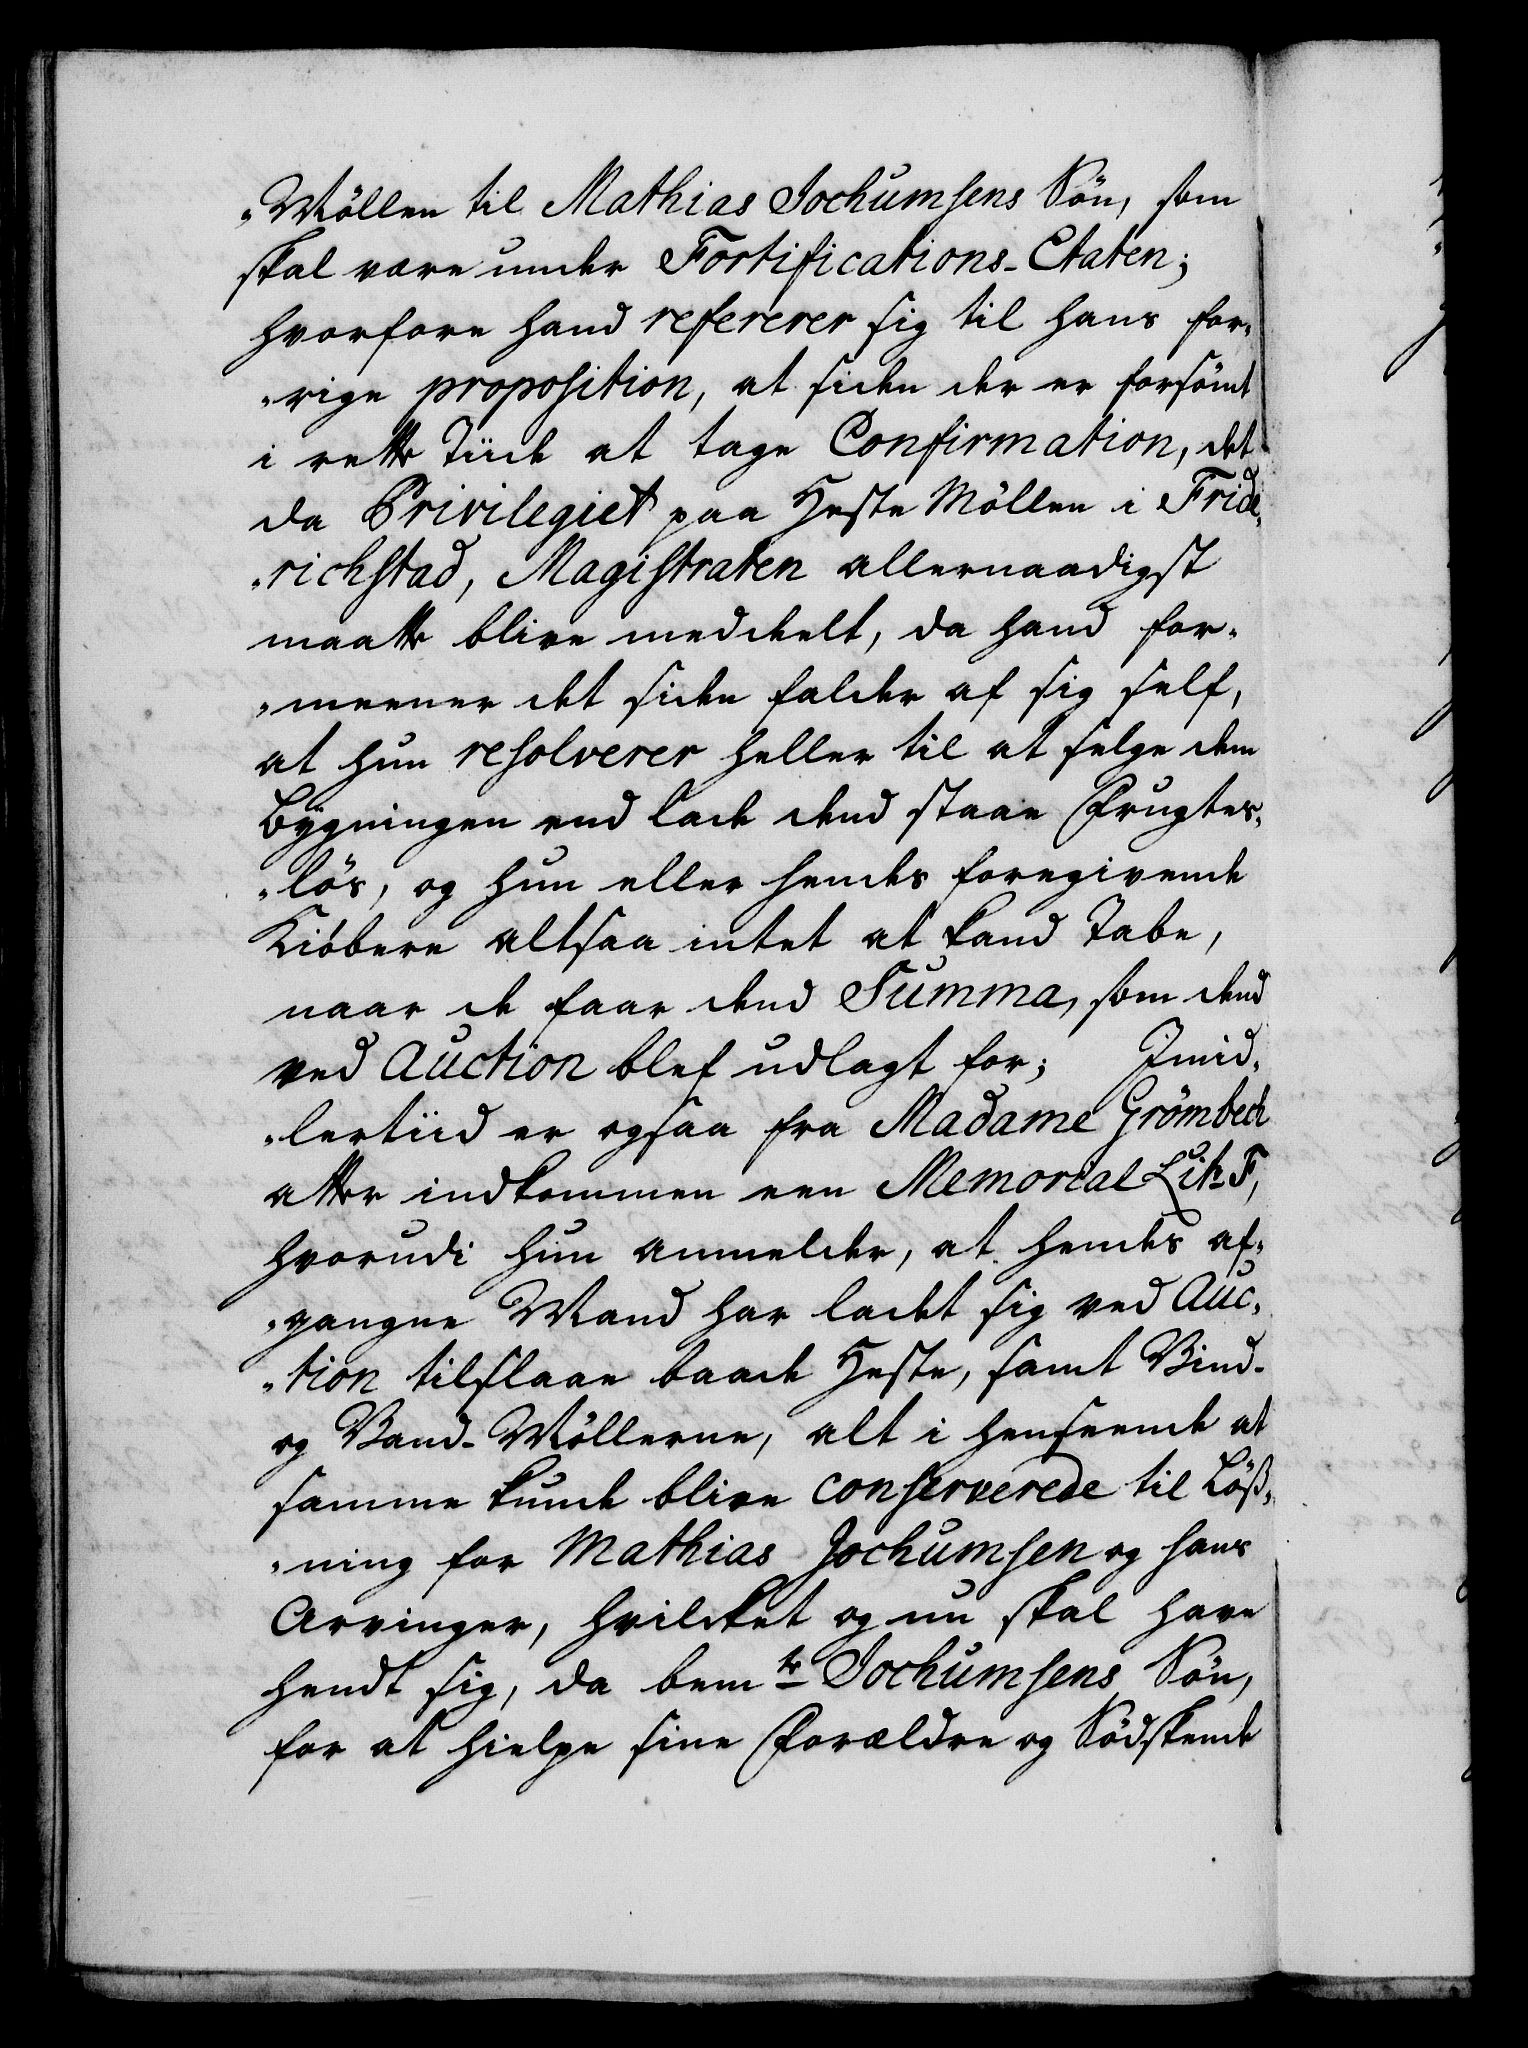 "Møllen til Mathias Jochumsens Søn, som
skal være under Fortifications-Etaten;
hvorfore hand refererer sig til hans for-
"rige proposition, at siden der er forsømt
i rette Tiide at tage Confirmation, det
da Privilegiet paa Heste Møllen i Fride-
"richstad, Magistraten allernaadigst
maatte blive meddeelt, da hand for-
"meener det siden falder af sig self,
at hun resolverer heller til at selge dem
Bygningen end lade dend staae Frugtes-
"løs, og hun eller hendes foregivende
Kiøbere altsaa intet at kand Tabe,
naar de faar dend Summa, som dend
ved Auction blef udlagt for; Imid-
"lertiid er ogsaa fra Madame Grømbech
atter indkommen een Memorial Lit. F,
hvorudi hun anmelder, at hendes af-
"gangne Mand har ladet sig ved Auc-
"tion tilslaae baade Heste, samt Vind-
og Vand-Møllerne, alt i henseende at
samme kunde blive conserverede til Løß-
"ning for Mathias Jochumsen og hans
Arvinger, hvilcket og nu skal have
hendt sig, da bemte Jochumsens Søn,
for at hielpe sine Forældre og Sødskende